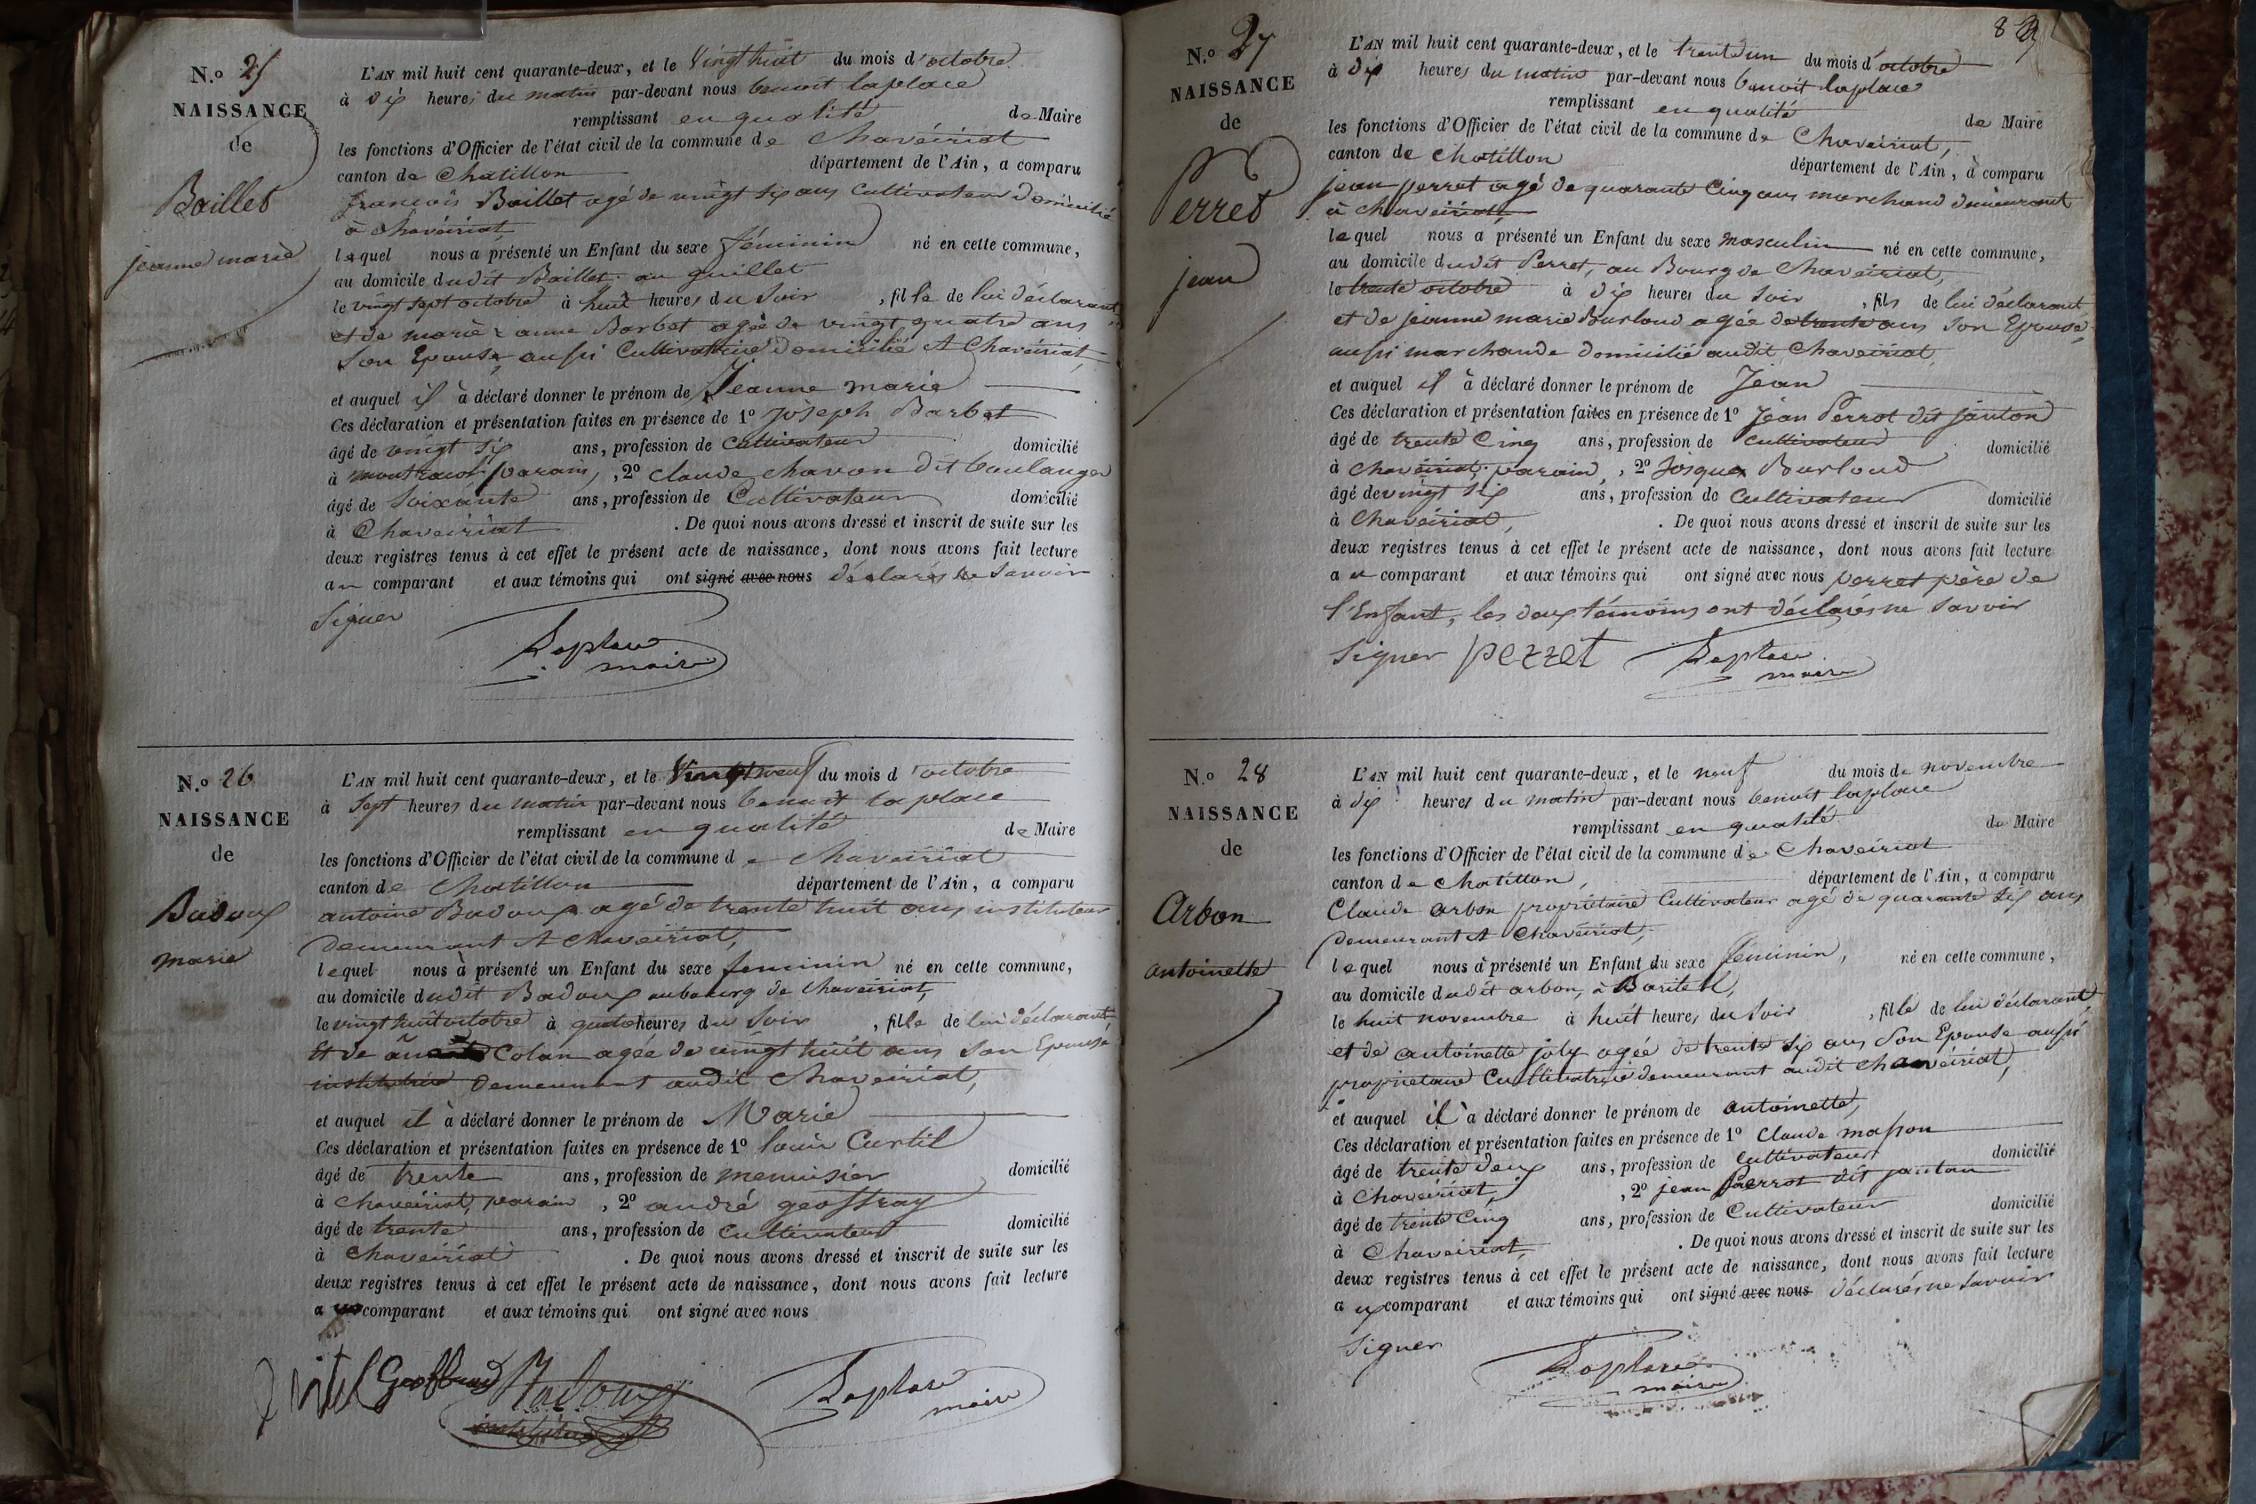 N.o 25
NAISSANCE
de
Baillet
jeanne marie
L'AN mil huit cent quarante-deux, et le vingt huit du mois d'octobre
à dix heures du matin par-devant nous benoit laplace
remplissant en qualité de Maire
les fonctions d'Officier de l'état civil de la commune de Chaveiriat
canton de Chatillon département de l'Ain, a comparu
françois Baillet agé de vingt six ans cultivateur domicilié
à Chaveiriat
lequel nous a présenté un Enfant du sexe féminin né en cette commune,
au domicile dudit Baillet au guillet
le vingt sept octobre à huit heures du soir, fille de lui déclarant,
et de marie anne Barbet agée de vingt quatre ans
son Epouse, aussi Cultivatrice domicilié A Chaveiriat,
et auquel il à déclaré donner le prénom de Jeanne marie
Ces déclaration et présentation faites en présence de 1o joseph Barbet
âgé de vingt six ans, profession de cultivateur domicilié
à montracol parain, 2o claude chavon dit boulanger
âgé de soixante ans, profession de Cultivateur domicilié
à Chaveiriat. De quoi nous avons dressé et inscrit de suite sur les
deux registres tenus à cet effet le présent acte de naissance, dont nous avons fait lecture
au comparant et aux témoins qui ont signé avec nous déclarés ne savoir
signer
Laplace
maire
N.o 26
NAISSANCE
de
Badoux
marie
L'AN mil huit cent quarante-deux, et le vingt neuf du mois d'octobre
à sept heures du matin par-devant nous benoit laplace
remplissant en qualité de Maire
les fonctions d'Officier de l'état civil de la commune de Chaveiriat
canton de Chatillon département de l'Ain, a comparu
antoine Badoux agé de trente huit ans instituteur
demeurant A Chaveiriat,
lequel nous à présenté un Enfant du sexe feminin né en cette commune,
au domicile dudit Badoux au bourg de Chaveiriat,
le vingt huit octobre à quatre heures du soir, fille de lui déclarant,
Et de Colan agée de vingt huit ans son Epouse,
institutrice demeurant audit Chaveiriat,
et auquel il à déclaré donner le prénom de Marie
Ces déclaration et présentation faites en présence de 1o louis Curtil
âgé de trente ans, profession de menuisier domicilié
à Chaveiriat, parain, 2o andré geoffray
âgé de trente ans, profession de cultivateur domicilié
à Chaveiriat. De quoi nous avons dressé et inscrit de suite sur les
deux registres tenus à cet effet le présent acte de naissance, dont nous avons fait lecture
a comparant et aux témoins qui ont signé avec nous
Badoux
Laplace
maire
8
N.o 27
NAISSANCE
de
Perret
jean
L'AN mil huit cent quarante-deux, et le trente un du mois d'octobre
à dix heures du matin par-devant nous benoit laplace
remplissant en qualité de Maire
les fonctions d'Officier de l'état civil de la commune de Chaveiriat,
canton de Chatillon département de l'Ain, à comparu
jean perret agé de quarante Cinq ans marchand demeurant
à Chaveiriat,
lequel nous a présenté un Enfant du sexe masculin né en cette commune,
au domicile dudit Perret, au Bourg de Chaveiriat,
le trente octobre à dix heures du soir, fils de lui déclarant,
et de jeanne marie Burloud agée de trente ans son Epouse,
aussi marchande domicilié audit Chaveiriat,
et auquel il à déclaré donner le prénom de Jean
Ces déclaration et présentation faites en présence de 1o Jean Perrot dit janton
âgé de trente Cinq ans, profession de cultivateur domicilié
à Chaveiriat, parain, 2o Burloud
âgé de vingt six ans, profession de Cultivateur domicilié
à Chaveiriat,. De quoi nous avons dressé et inscrit de suite sur les
deux registres tenus à cet effet le présent acte de naissance, dont nous avons fait lecture
au comparant et aux témoins qui ont signé avec nous perret père de
l'Enfant, les deux témoins ont déclarés ne savoir
signer perret Laplace
maire
N.o 28
NAISSANCE
de
Arbon
antoinette
L'AN mil huit cent quarante-deux, et le neuf du mois de novembre
à dix heures du matin par-devant nous benoit laplace
remplissant en qualité de Maire
les fonctions d'Officier de l'état civil de la commune de Chaveiriat
canton de Chatillon, département de l'Ain, a comparu
Claude arbon propriétaire Cultivateur agé de quarante six ans
demeurant A Chaveiriat,
lequel nous à présenté un Enfant du sexe féminin, né en cette commune,
au domicile dudit arbon, à
le huit novembre à huit heures du soir, fille de lui déclarant,
et de antoinette joly agée de trente six ans son Epouse aussi
propriétaire Cultivatrice demeurant audit chaveiriat,
et auquel il à déclaré donner le prénom de antoinette,
Ces déclaration et présentation faites en présence de 1o Claude masson
âgé de trente deux ans, profession de Cultivateur domicilié
à Chaveiriat, 2o jean Perrot dit janton
âgé de trente Cinq ans, profession de Cultivateur domicilié
à Chaveiriat,. De quoi nous avons dressé et inscrit de suite sur les
deux registres tenus à cet effet le présent acte de naissance, dont nous avons fait lecture
au comparant et aux témoins qui ont signé avec nous déclarés ne savoir
signer
Laplace
maire